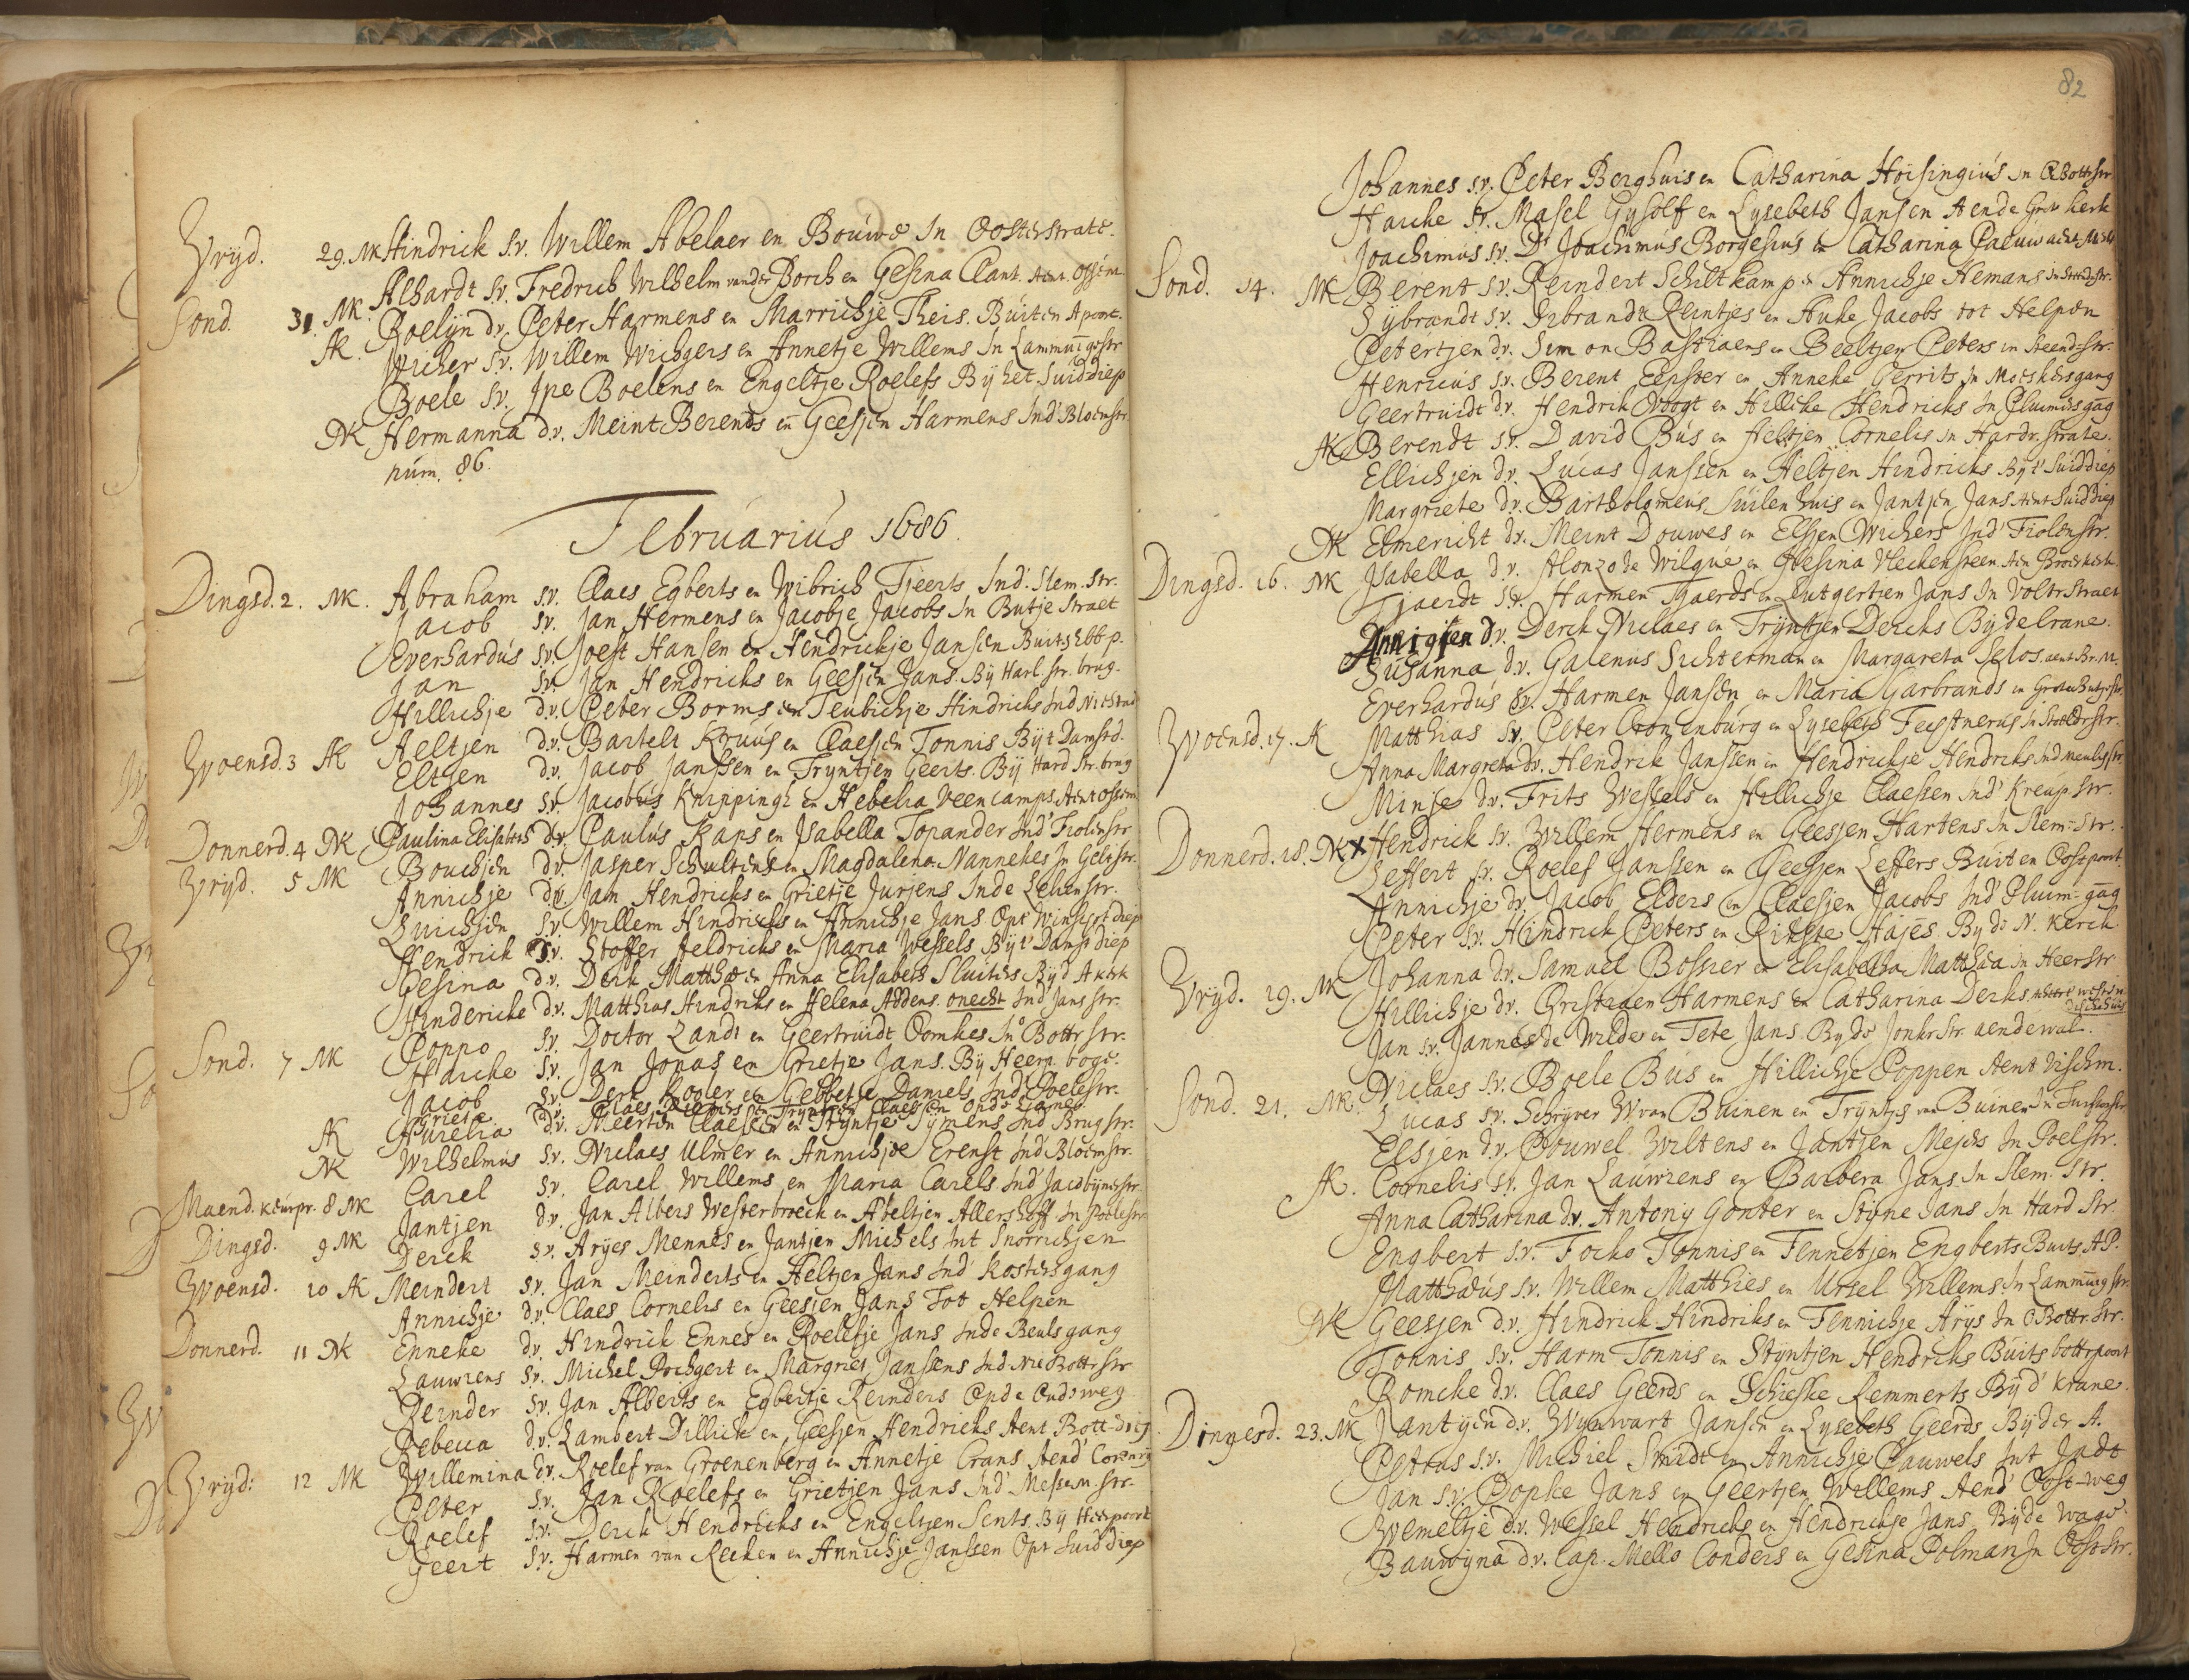 Vryd. 29. NK Hindrick s.v. Willem Abelaer en Bouwe In Oosterstrate.
Alhardt s.v. Fredrich Wilhelm vander Borch en Gesina Clant. Aent. Ossem
Sond. 31. NK. Roelijn d.v. Peter Harmens en Marrichje Theis. Buiten Apoort.
AK. Wicher s.v. Willem Wichgers en Annetje Willems In Lammuigestr
Boele s.v. Ipe Boelens en Engeltje Roelefs By het Suiddiep
NK Hermanna d.v. Meint Berends en Geesjen Harmens Ind' Bloemstr.
num. 86.
Februarius 1686.
Dingsd. 2. NK. Abraham s.v. Claes Egberts en Wibrich Tjeerts Ind'. Slem. Str.
Jacob s.v. Jan Hermens en Jacobje Jacobs In Butje Straet
Everhardus s.v. Joest Hansen en Hendrickje Jansen Buits Ebb p.
Jan s.v. Jan Hendricks en Geesjen Jans. By Harl. str. brug.
Hillichje d.v. Peter Borms en Teubichje Hindricks Ind Nie Stad
Woensd. 3 AK Aeltjen d.v. Bartelt Kruus en Claesjen Tonnis By t Damstd.
Eltjen d.v. Jacob Janssen en Tryntjen Geerts. By Hard Str. brug
Johannes s.v. Jacobus Knippingh en Hebelia Veencamps Aent ossem
Donnerd. 4 NK Paulina Elisabeth d.v. Paulus Kaps en Isabella Topander Ind' Fiolenstr
Vryd. 5 NK Bouchjen d.v. Jasper Schultens en Magdalena Nannekes In Gelkstr.
Annichje d.v. Jan Hendricks en Grietje Jurjens Inde Lelienstr.
Luichjen s.v. Willem Hindricks en Annichje Jans Opt Winschot diep
Hendrick s.v. Stoffer Heldricks en Maria Wessels By t' Damst diep
Gesina d.v. Derk Matthae en Anna Elisabeth Sluiters By d' A kerk
Hindericke d.v. Matthias Hindriks en Helena Addens. onecht Ind' Jans str.
Sond. 7 NK Poppo s.v. Doctor Landt en Geertruidt Oomkes In Bottr Str.
Harcke s.v. Jan Jonas en Grietje Jans. By Heerp. boge.
Jacob s.v. Derk Kooler en Gebbetje Daniels Ind' Poelestr.
Grieta d.v. Claes en Tryntjen Claessen
AK Aurelia d.v. Meerten Claessen en Tryntje Tymens Ind' Brugstr.
NK Wilhelmus s.v. Niclaes Ulmer en Annichjoe Erenst Ind' Bloemstr.
Maend. Keurpr. 8 NK Carel s.v. Carel Willems en Maria Carels Ind' Jacobynerstr
Dingsd. 9 NK Jantjen d.v. Jan Albers Westerbroeck en Abeltjen Allershoff In Poelestr
Derck s.v. Aryes Mennes en Jantjen Michels Int Snorrichjen
Woensd. 10 AK Meindert s.v. Jan Meinderts en Aeltjen Jans Ind' Kostersgang
Annichje d.v. Claes Cornelis en Geesjen Jans Tot Helpen
Donnerd. 11 NK Enneke d.v. Hindrick Ennes en Roelefje Jans Inde Beulsgang
Lauwrens s.v. Michel Prichgert en Margriet Janssens Ind Nie Bottr Str
Reinder s.v. Jan Alberts en Egbertje Reinders Opde Oudeweg
Rebecca d.v. Lambert Dillich en Geesjen Hendricks Aent Bott-diep
Vryd: 12 NK Willemina d.v. Roelef van Groenenberg en Annetje Crans Aend'
Peter s.v. Jan Roelefs en Grietjen Jans Ind' Messem.str.
Roelef s.v. Derck Hendricks en Engeltjen Sents. By Heerpoort
Geert s.v. Harmen van Recken en Annichje Janssen Opt Suiddiep
82
Johannes s.v. Peter Berghuis en Catharina Hoisingius In OBottstr
Harcke s.v. Masel Gysolf en Lysebeth Jansen Aende Grov kerk
Joachimus s.v. Dr. Joachimus Borgesius en Catharina Paeuw
Sond. 14. NK Berent s.v. Reindert Schiltkamp en Annichje Hemans In Steedestr.
Sybrandt s.v. Sibrandt Reintjes en Auke Jacobs tot Helpen
Petertjen d.v. Simon Bastiaens en Beeltjen Peters in Steend-Str.
Henricus s.v. Berent Eepster en Anneke Gerrits In Moeskersgang
Geertruidt d.v. Hendrik Voogt en Hillike Hendricks In Pluimersgag
AK Berendt s.v. David Bus en Aeltjen Cornelis In Hardr. strate.
Ellichjen d.v. Lucas Janssen en Aeltjen Hindricks By t' Suiddiep
Margriete d.v. Bartholomeus Suilenhuis en Jantjen Jans Aent Suiddiep
NK Elmericht d.v. Meint Douwes en Elsjen Wichers Ind' Fiolenstr.
Dingsd. 16. NK Isabella d.v. Alonzo de Wilgue en Gesina Vleckensteen Aen Broerkerk
Tjaerdt s.v. Harmen Tjaerds en Lutgertjen Jans In Voltr Straet
Annigjen d.v. Derck Niclaes en Tryntjen Dercks By de Crane.
Susanna d.v. Galenus Sichterman en Margareta Selos. aent Br. M.
Everhardus s.v. Harmen Jansen en Maria Garbrands in Groten Butjestr
Woensd. 17. A Matthias s.v. Peter Cronenburg en Lysebeth Feestnerus In Stoeldrstr.
Anna Margreta d.v. Hendrik Janssen en Hendrickje Hendriks Ind
Minje d.v. Frits Wessels en Hillichje Claessen Ind' Kreup Str.
Donnerd. 18. NK X Hendrick s.v. Willem Hermens en Geesjen Hartens In Slem-Str.
Leffert s.v. Roelef Janssen en Geesjen Leffers Buiten Oostpoort
Annichje d.v. Jacob Elders en Claesjen Jacobs Ind' Pluim-gag
Peter s.v. Hindrick Peters en Rikste Hajes By de N. Kerck.
Vryd. 19. NK Johanna d.v. Samuel Bossier en Elisabetha Matthaa in HeerStr
Hillichje d.v. Christiaen Harmens en Catharina Derks
Jan s.v. Jannes de Wilde en Tete Jans By de Jonkr Str. aendewal.
Sond. 21. NK. Niclaes s.v. Boele Bus en Hillichje Poppen Aent Vischm.
Lucas s.v. Schryver W van Buinen en Tryntje van Buinen In
Elsjen d.v. Pouwel Wiltens en Jantjen Mejers In Poelstr.
AK. Cornelis s.v. Jan Lauwrens en Barbera Jans. In Slem. Str.
Anna Catharina d.v. Antony Gonter en Styne Jans In Hard Str.
Engbert s.v. Focko Tonnis en Tennetjen Engberts Buits AP.
Matthaeus s.v. Willem Matthies en Ursel Willems. In Lammuig str.
NK Geesjen d.v. Hindrick Hindriks en Tennichje Arys In OBottr. Str.
Tonnis s.v. Harm Tonnis en Styntjen Hendricks Buits bottrpoort
Romcke d.v. Claes Geerds en Schieske Remmerts By d' Krane.
Dingesd. 23. NK Jantyen d.v. Wynwart Jansen en Lysebeth Geerds By der A.
Petrus s.v. Michiel Smidt en Annichje Pauwels Int Jadt
Jan s.v. Popke Jans en Geertjen Willems Aend' Oost-weg
Wemeltje d.v. Wessel Hendricks en Hendrickje Jans. Byde Wage.
Bauwyna d.v. Cap. Mello Conders en Gesina Polman In Oostr Str.